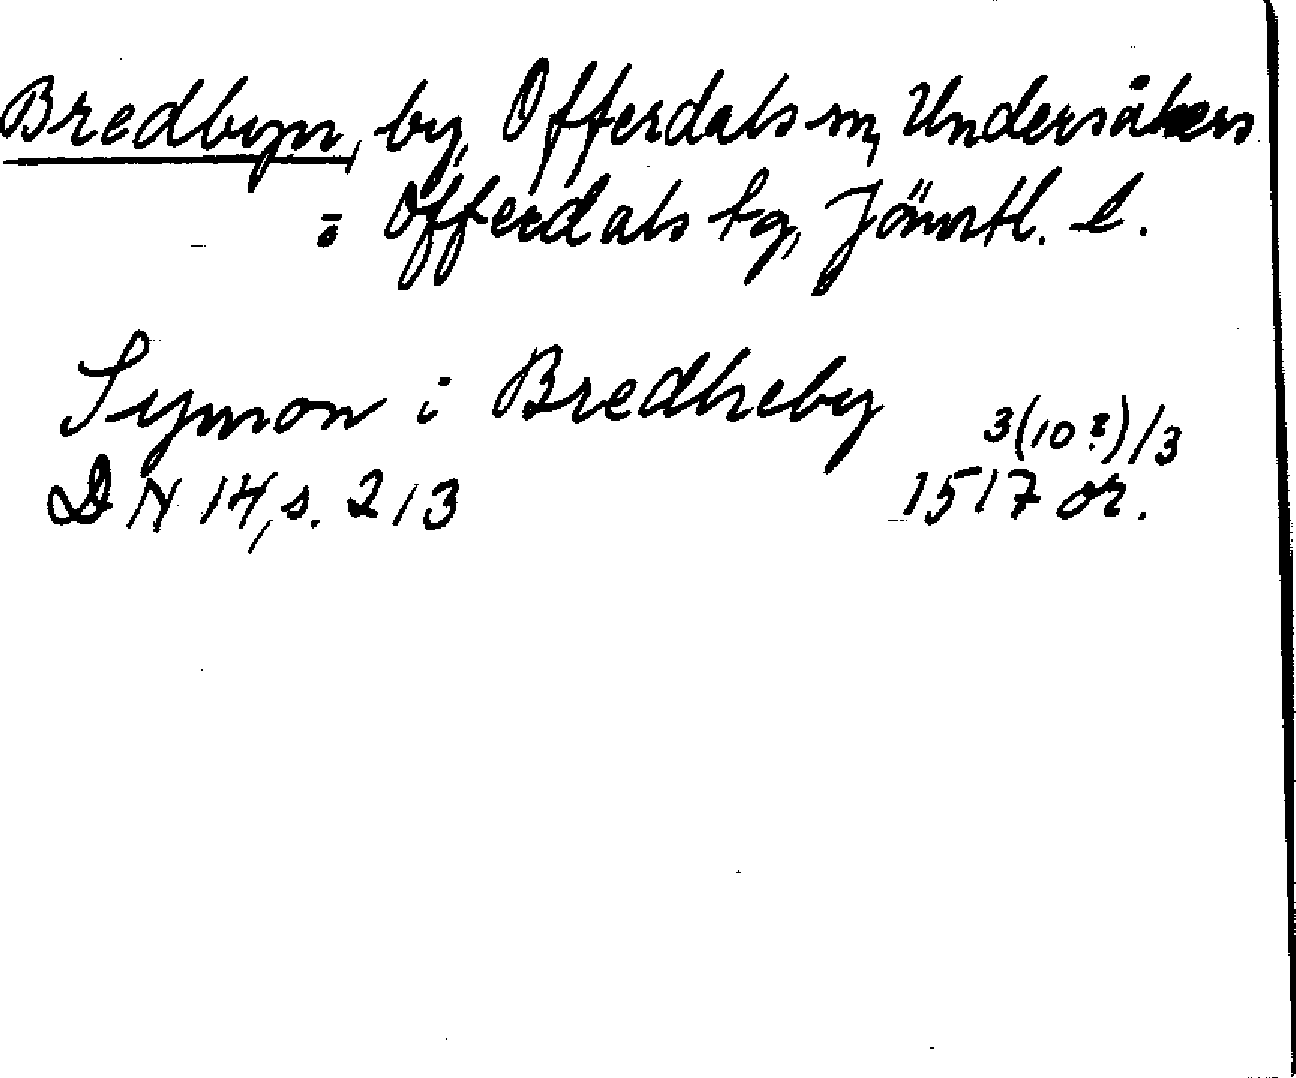 Bredbyn, by, Offerdals sn, Undersåkers
= Offerdals tg, Jämtl. l.
Symon i Bredheby
3(10?)/3
DN 14, s. 213 1517 or.